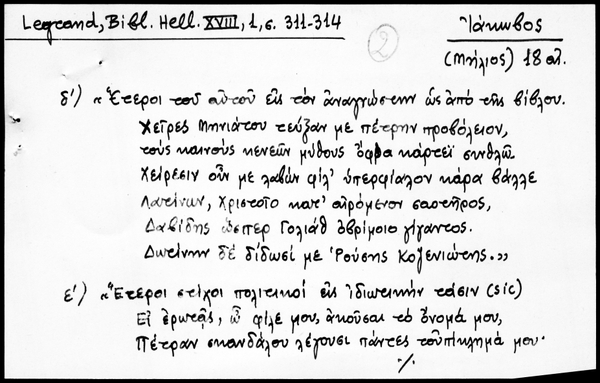 Legrand, Bibl. Hell. XVIII, 1, σ. 311-314
2
Ἰάκωβος
(Μήλιος) 18 αἰ.
δ') «Ἕτεροι τοῦ αὐτοῦ εἰς τὸν ἀναγνώστην ὡς ἀπὸ τῆς βίβλου.
Χεῖρες Μηνιάτου τεῦξαν με πέτρην προβόλειον,
τοὺς καινοὺς κενεῶν μύθους ὄφρα κάρτεϊ συνθλῶ
Χείρεσιν οὖν με λαβὼν φίλ' ὑπερφίαλον κάρα βάλλε
Λατίνων, Χριστοῖο κατ' αἰρόμενον σαοτῆρος,
Δαβίδης ὥσπερ Γολιὰθ ὀβρίμοιο γίγαντος.
Δωτίνην δὲ δίδωσί με Ῥούσης Κοζενιώτης.»
ε') «Ἕτεροι στίχοι πολιτικοί εἰς ἰδιωτικὴν τάσιν (sic)
Εἰ ἐρωτᾷς, ὦ φίλε μου, ἀκοῦσαι τὸ ὄνομά μου,
Πέτραν σκανδάλου λέγουσι πάντες τοὐπίκλημά μου·
./.